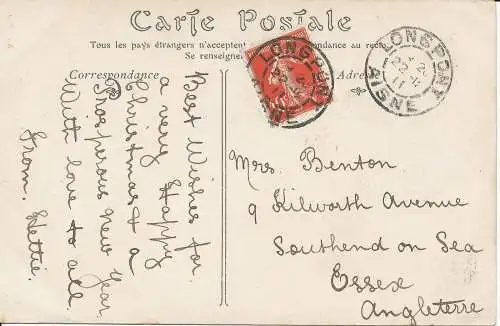 Carte Postale
Tous les pays étrangers n'acceptent pondance au recto.
Se renseigner
Correspondance
Adresse
LONGPONT
AISNE
LONGPONT
22
11
AISNE
Best Wishes for
a very Happy
Christmas & a
Prosperous New Year
With love to all
From. Hettie.
Mrs. Benton
9 Kilworth Avenue
Southend on Sea
Essex
Angleterre